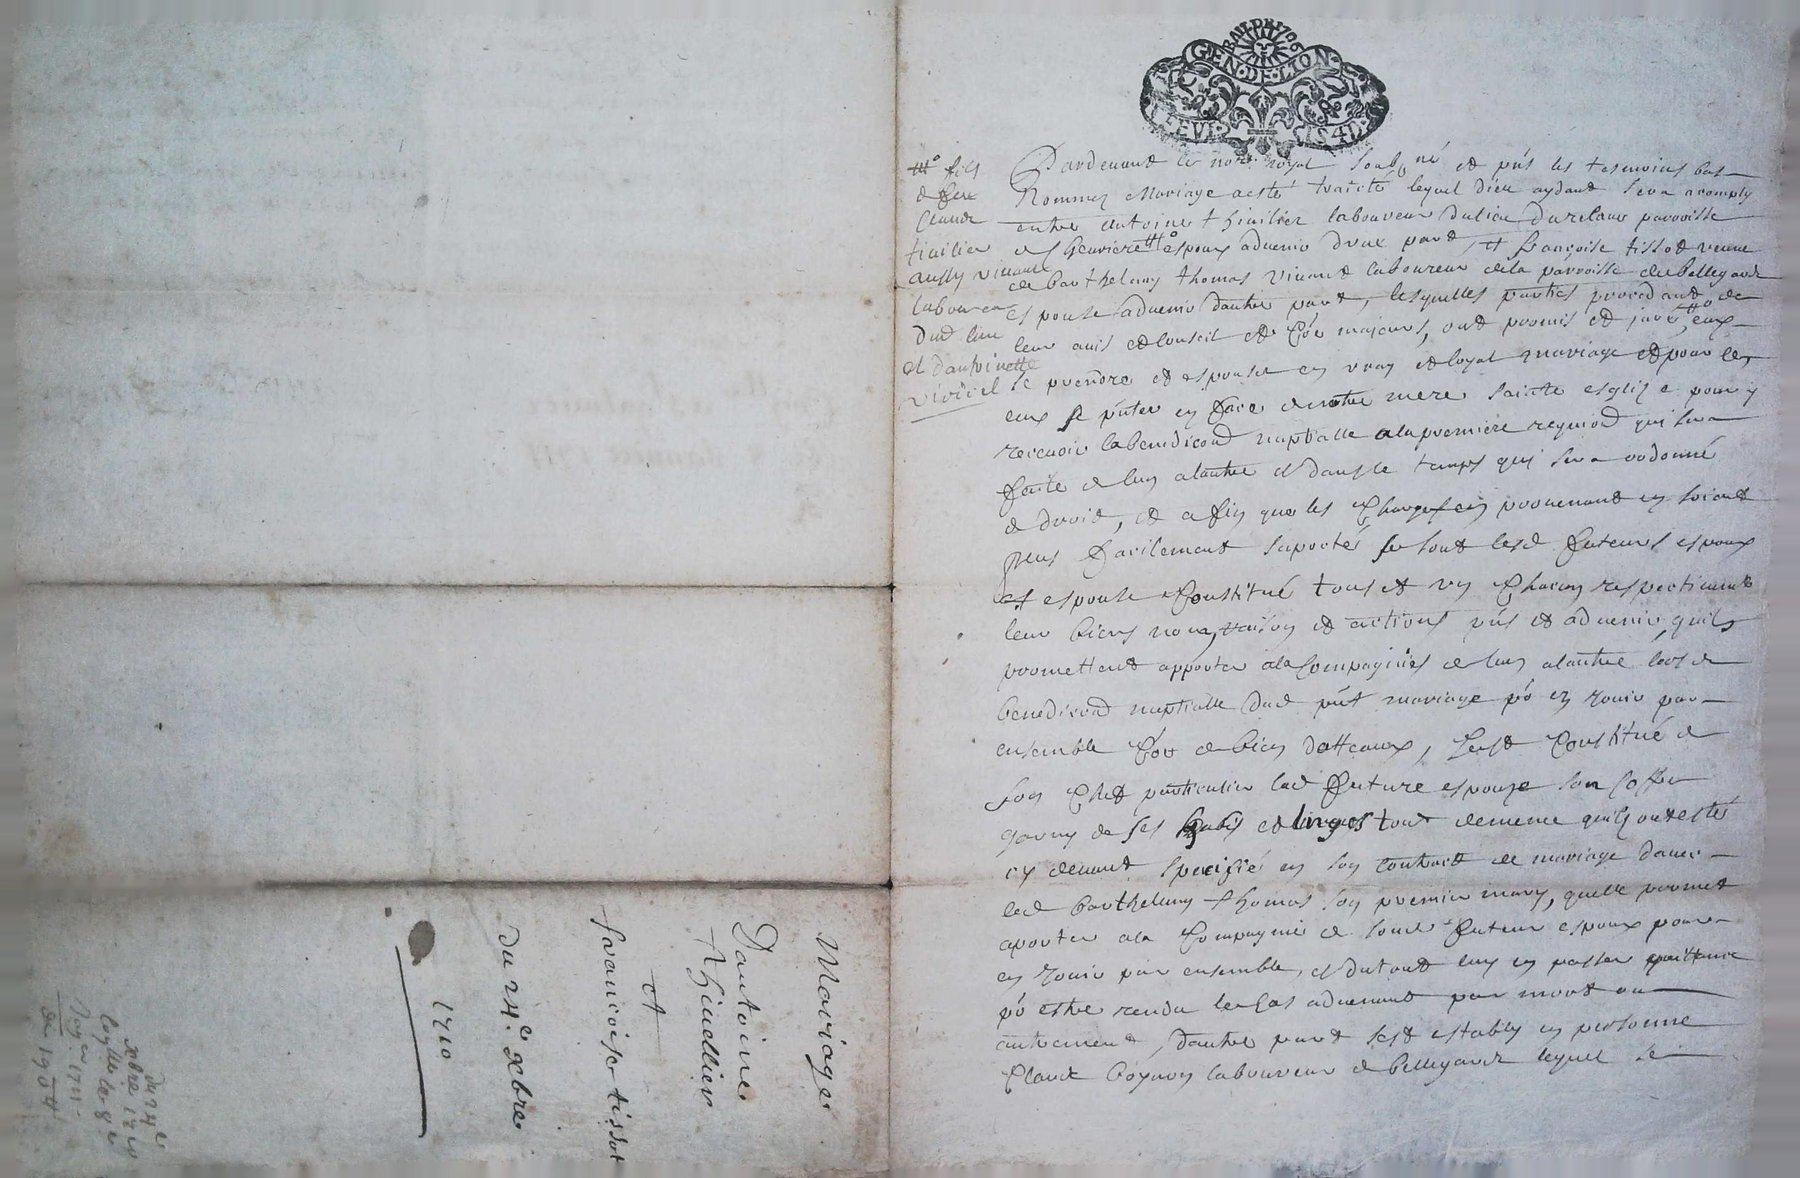 BAIL DE 1706
GEN·DE·LION
Pardevant le no.re royal soub.né et p'ns les tesmoins bas
Nommez Mariage a esté traicté lequel dieu aydant sera acomply
entre antoine thiuilier laboureur du lieu paroisse
espoux advenir d'une part, et françoise tissot veuve
de Barthelemy thomas vivant laboureur de la parroisse de bellegarde
espouse advenir dautre part, lesquelles parties procedant de
leur avis et conseil et majeurs, ont promis et juré eux
se prendre et espouser en vray et loyal mariage et pour ce
eux se p'nter en face de notre mere sainte esglize pour y
recevoir la benediction nuptialle a la premiere requion qui sera
faite de lun a lautre et dans le temps qui sera ordonné
de droit, et afin que les charges en provenant en soient
plus facilement suporté se sont lesd futeurs espoux
et espouse constitué tous et un chacun respectivement
leur biens nons, raison et actions p'ns et advenir, quils
promettent apporter a la compagnies de lun a lautre lors de
benediction nuptialle dud p'nt mariage po en jouir par
ensemble de bien dotteaux, sest constitué de
son chef particulier lad future espouze son coffre
garny de ses habis et linges tout de meme quils ont esté
cy devant specifié en son contract de mariage avec
led barthelemy thomas son premier mary, quelle promet
aporter a la compagnie de soud futeur espoux pour
en jouir par ensemble, et dutout luy en passer quittance
po estre rendu le cas advenant par mort ou
autrement, dautre part sest estably en personne
Claude laboureur de bellegarde lequel de
fils
de feu
Claude
tiuilier
aussy vivant
laboureur
dud lieu
et dantoinette
Mariage
Dantoine
Thiuellier
et
francoise tissot
du 24.e xbre
1710
du 24.e
xbre 1710
Janv.er 1711